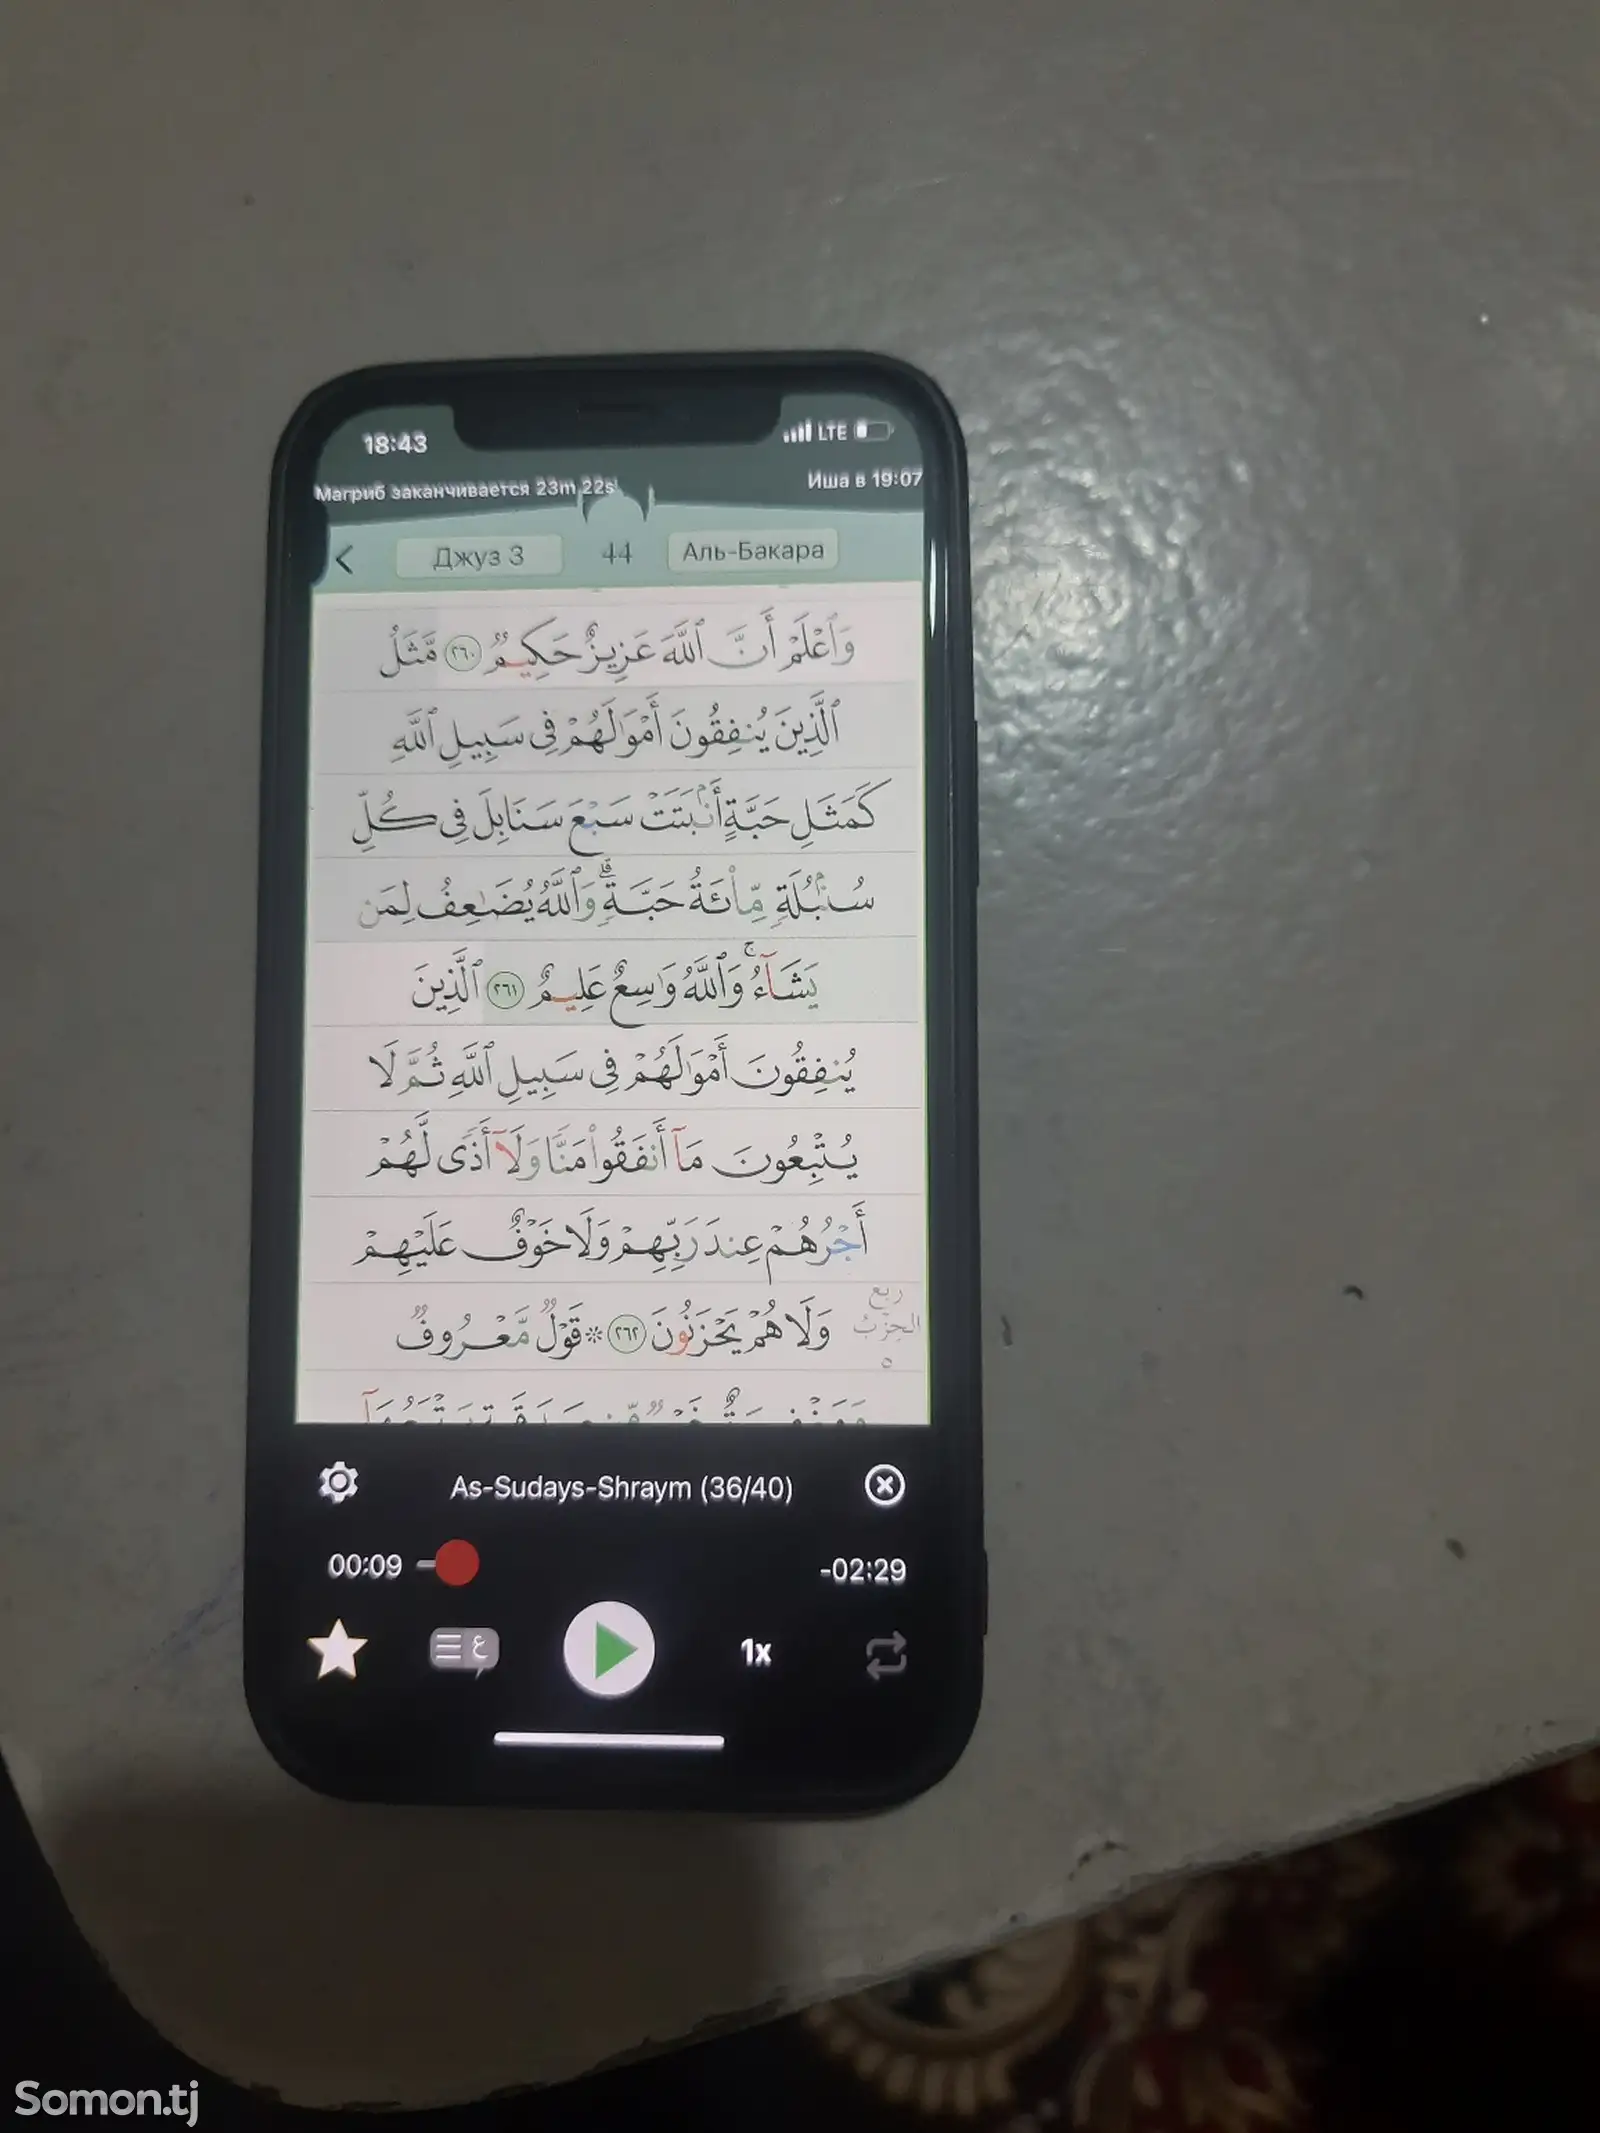 18:43
LTE
Магриб заканчивается 23m 22s
Иша в 19:07
Джуз 3
44
Аль-Бакара
وَٱعۡلَمۡ أَنَّ ٱللَّهَ عَزِيزٌ حَكِيمٞ ٢٦٠ مَّثَلُ
ٱلَّذِينَ يُنفِقُونَ أَمۡوَٰلَهُمۡ فِي سَبِيلِ ٱللَّهِ
كَمَثَلِ حَبَّةٍ أَنۢبَتَتۡ سَبۡعَ سَنَابِلَ فِي كُلِّ
سُنۢبُلَةٖ مِّاْئَةُ حَبَّةٖۗ وَٱللَّهُ يُضَٰعِفُ لِمَن
يَشَآءُۚ وَٱللَّهُ وَٰسِعٌ عَلِيمٌ ٢٦١ ٱلَّذِينَ
يُنفِقُونَ أَمۡوَٰلَهُمۡ فِي سَبِيلِ ٱللَّهِ ثُمَّ لَا
يُتۡبِعُونَ مَآ أَنفَقُواْ مَنّٗا وَلَآ أَذٗى لَّهُمۡ
أَجۡرُهُمۡ عِندَ رَبِّهِمۡ وَلَا خَوۡفٌ عَلَيۡهِمۡ
وَلَا هُمۡ يَحۡزَنُونَ ٢٦٢ ۞ قَوۡلٞ مَّعۡرُوفٞ
ربع
الحزب
٥
As-Sudays-Shraym (36/40)
00:09
-02:29
ع
1x
Somon.tj